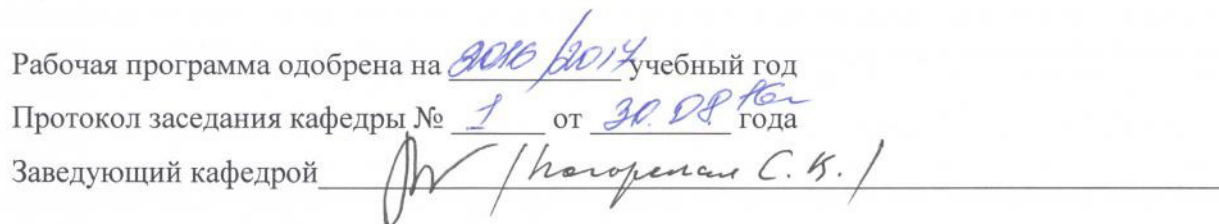 Рабочая программа одобрена на 2016/2017 учебный год
Протокол заседания кафедры № 1 от 30.08.16г года
Заведующий кафедрой /Погорелая С.К./